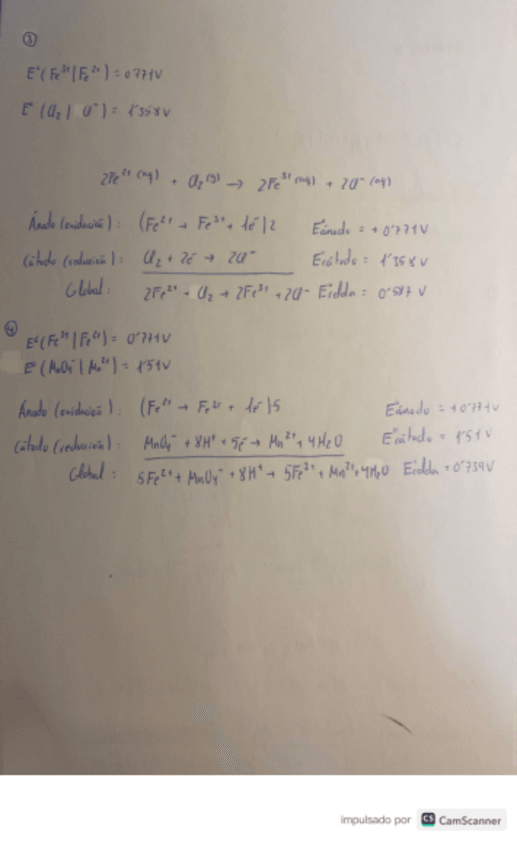 ③
E°(Fe³⁺|Fe²⁺) = 0'771V
E°(Cl₂|Cl⁻) = 1'358V
2Fe²⁺(aq) + Cl₂(g) → 2Fe³⁺(aq) + 2Cl⁻(aq)
Ánodo (oxidación): (Fe²⁺ → Fe³⁺ + 1e⁻)2 E°ánodo = +0'771V
Cátodo (reducción): Cl₂ + 2e⁻ → 2Cl⁻ E°cátodo = 1'358V
Global: 2Fe²⁺ + Cl₂ → 2Fe³⁺ + 2Cl⁻ E°celda = 0'587 V
④
E°(Fe³⁺|Fe²⁺) = 0'771V
E°(MnO₄⁻|Mn²⁺) = 1'51V
Ánodo (oxidación): (Fe²⁺ → Fe³⁺ + 1e⁻)5 E°ánodo = +0'771V
Cátodo (reducción): MnO₄⁻ + 8H⁺ + 5e⁻ → Mn²⁺ + 4H₂O E°cátodo = 1'51V
Global: 5Fe²⁺ + MnO₄⁻ + 8H⁺ → 5Fe³⁺ + Mn²⁺ + 4H₂O E°celda = 0'739V
impulsado por CS CamScanner